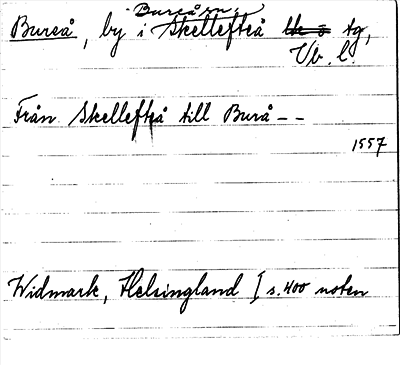 Bureå sn.
Bureå, by i Skellefteå tg,
Vb. l.
Från Skellefteå till Burå – –
1557
Widmark, Helsingland I s. 400 noten